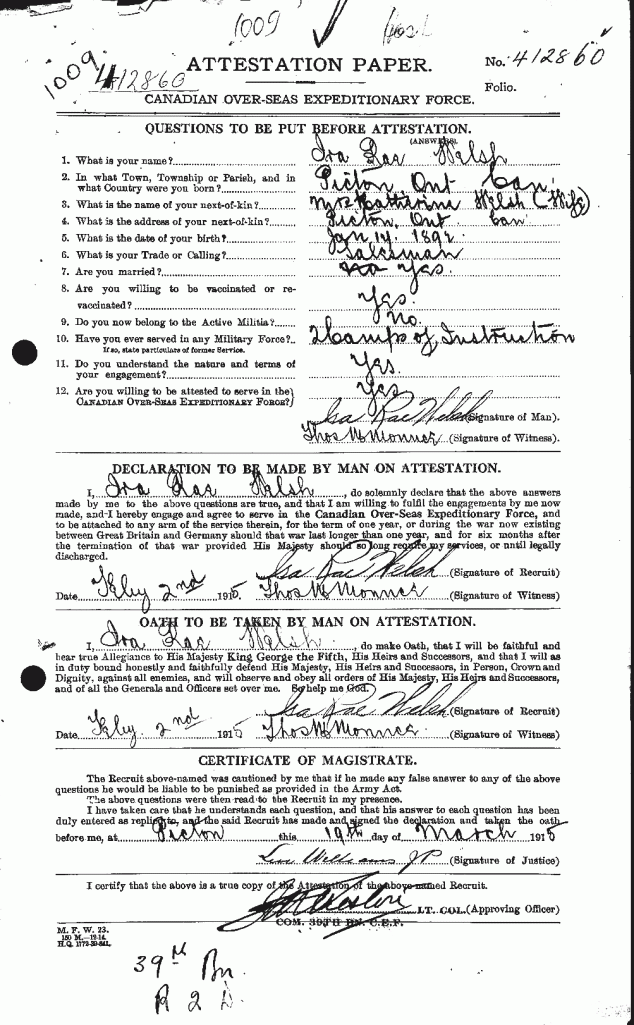 1009
1009 412860
ATTESTATION PAPER.
No. 412860
Folio.
CANADIAN OVER-SEAS EXPEDITIONARY FORCE.
QUESTIONS TO BE PUT BEFORE ATTESTATION.
(ANSWERS).
1. What is your name? Ira Rae Welsh
2. In what Town, Township or Parish, and in
what Country were you born? Picton, Ont Can
3. What is the name of your next-of-kin? Mrs Katharine Welsh (Wife)
4. What is the address of your next-of-kin? Picton, Ont Can
5. What is the date of your birth? Jan 14. 1892
6. What is your Trade or Calling? Salesman
7. Are you married? no Yes.
8. Are you willing to be vaccinated or re-
vaccinated? Yes.
9. Do you now belong to the Active Militia? No.
10. Have you ever served in any Military Force? 2 Camps of Instruction
If so, state particulars of former Service.
11. Do you understand the nature and terms of
your engagement? Yes.
12. Are you willing to be attested to serve in the
CANADIAN OVER-SEAS EXPEDITIONARY FORCE? Yes
Ira Rae Welsh (Signature of Man).
Thos (Signature of Witness).
DECLARATION TO BE MADE BY MAN ON ATTESTATION.
I, Ira Rae Welsh, do solemnly declare that the above answers
made by me to the above questions are true, and that I am willing to fulfil the engagements by me now
made, and I hereby engage and agree to serve in the Canadian Over-Seas Expeditionary Force, and
to be attached to any arm of the service therein, for the term of one year, or during the war now existing
between Great Britain and Germany should that war last longer than one year, and for six months after
the termination of that war provided His Majesty should so long require my services, or until legally
discharged.
Ira Rae Welsh (Signature of Recruit)
Date Feby 2nd 1915 Thos (Signature of Witness)
OATH TO BE TAKEN BY MAN ON ATTESTATION.
I, Ira Rae Welsh, do make Oath, that I will be faithful and
bear true Allegiance to His Majesty King George the Fifth, His Heirs and Successors, and that I will as
in duty bound honestly and faithfully defend His Majesty, His Heirs and Successors, in Person, Crown and
Dignity, against all enemies, and will observe and obey all orders of His Majesty, His Heirs and Successors,
and of all the Generals and Officers set over me. So help me God.
Ira Rae Welsh (Signature of Recruit)
Date Feby 2nd 1915 Thos (Signature of Witness)
CERTIFICATE OF MAGISTRATE.
The Recruit above-named was cautioned by me that if he made any false answer to any of the above
questions he would be liable to be punished as provided in the Army Act.
The above questions were then read to the Recruit in my presence.
I have taken care that he understands each question, and that his answer to each question has been
duly entered as replied to, and the said Recruit has made and signed the declaration and taken the oath
before me, at Picton this 19th day of March 1915
Williams JP (Signature of Justice)
I certify that the above is a true copy of the Attestation of the above-named Recruit.
LT. COL. (Approving Officer)
COM. 39TH BN. C.E.F.
M. F. W. 23.
150 M.—12-14.
H.Q. 1772-39-841.
39th Bn
R 2 D